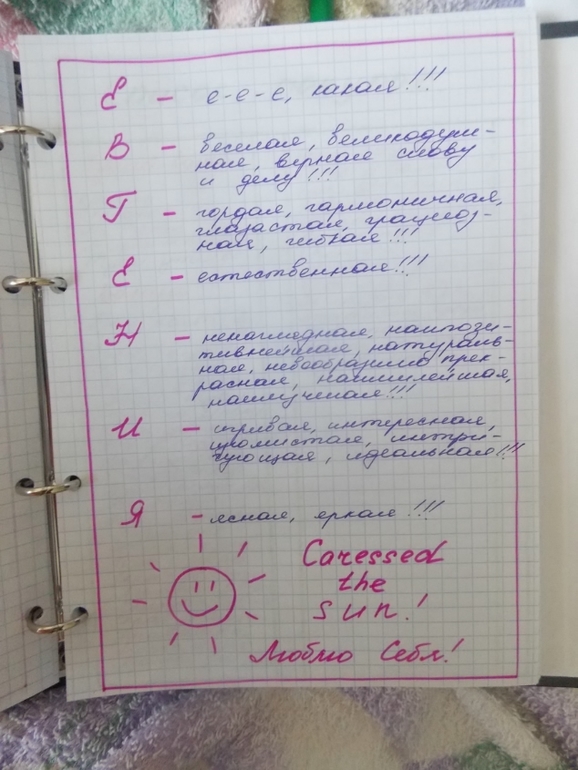 Е – е-е-е, какая!!!
В – веселая, великодуш-
ная, верная слову
и делу!!!
Г – гордая, гармоничная,
глазастая, грациоз-
ная, гибкая!!!
Е – естественная!!!
Н – ненаглядная, наипози-
тивнейшая, натураль-
ная, невообразимо прек-
расная, наимилейшая,
наилучшая!!!
И – игривая, интересная,
искристая, интри-
гующая, идеальная!!!
Я – ясная, яркая!!!
Caressed
the
sun!
Люблю Себя!